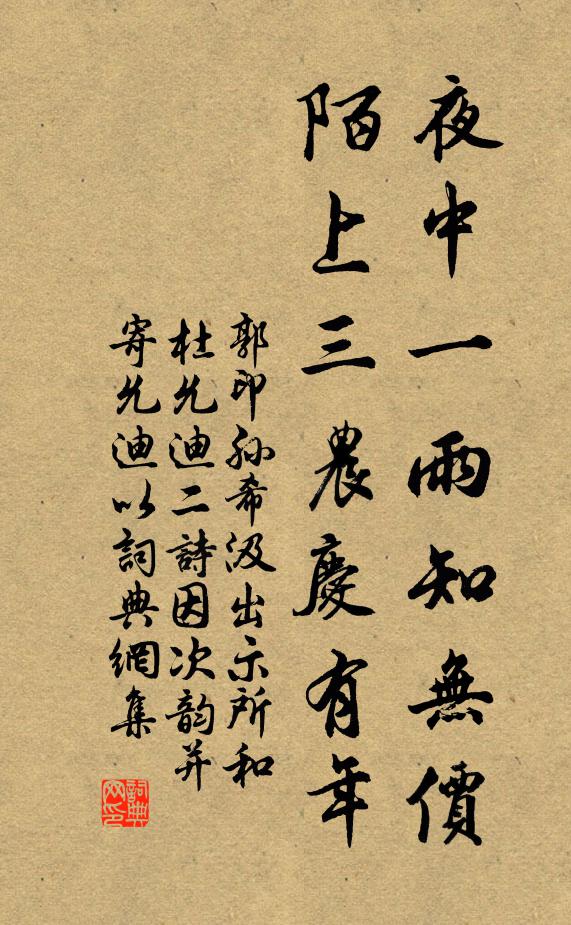 夜中一雨知無價
陌上三農慶有年
郭印孫希汲出示所和
杜允迪二詩因次韵并
寄允迪以詞典網集
詞典网印